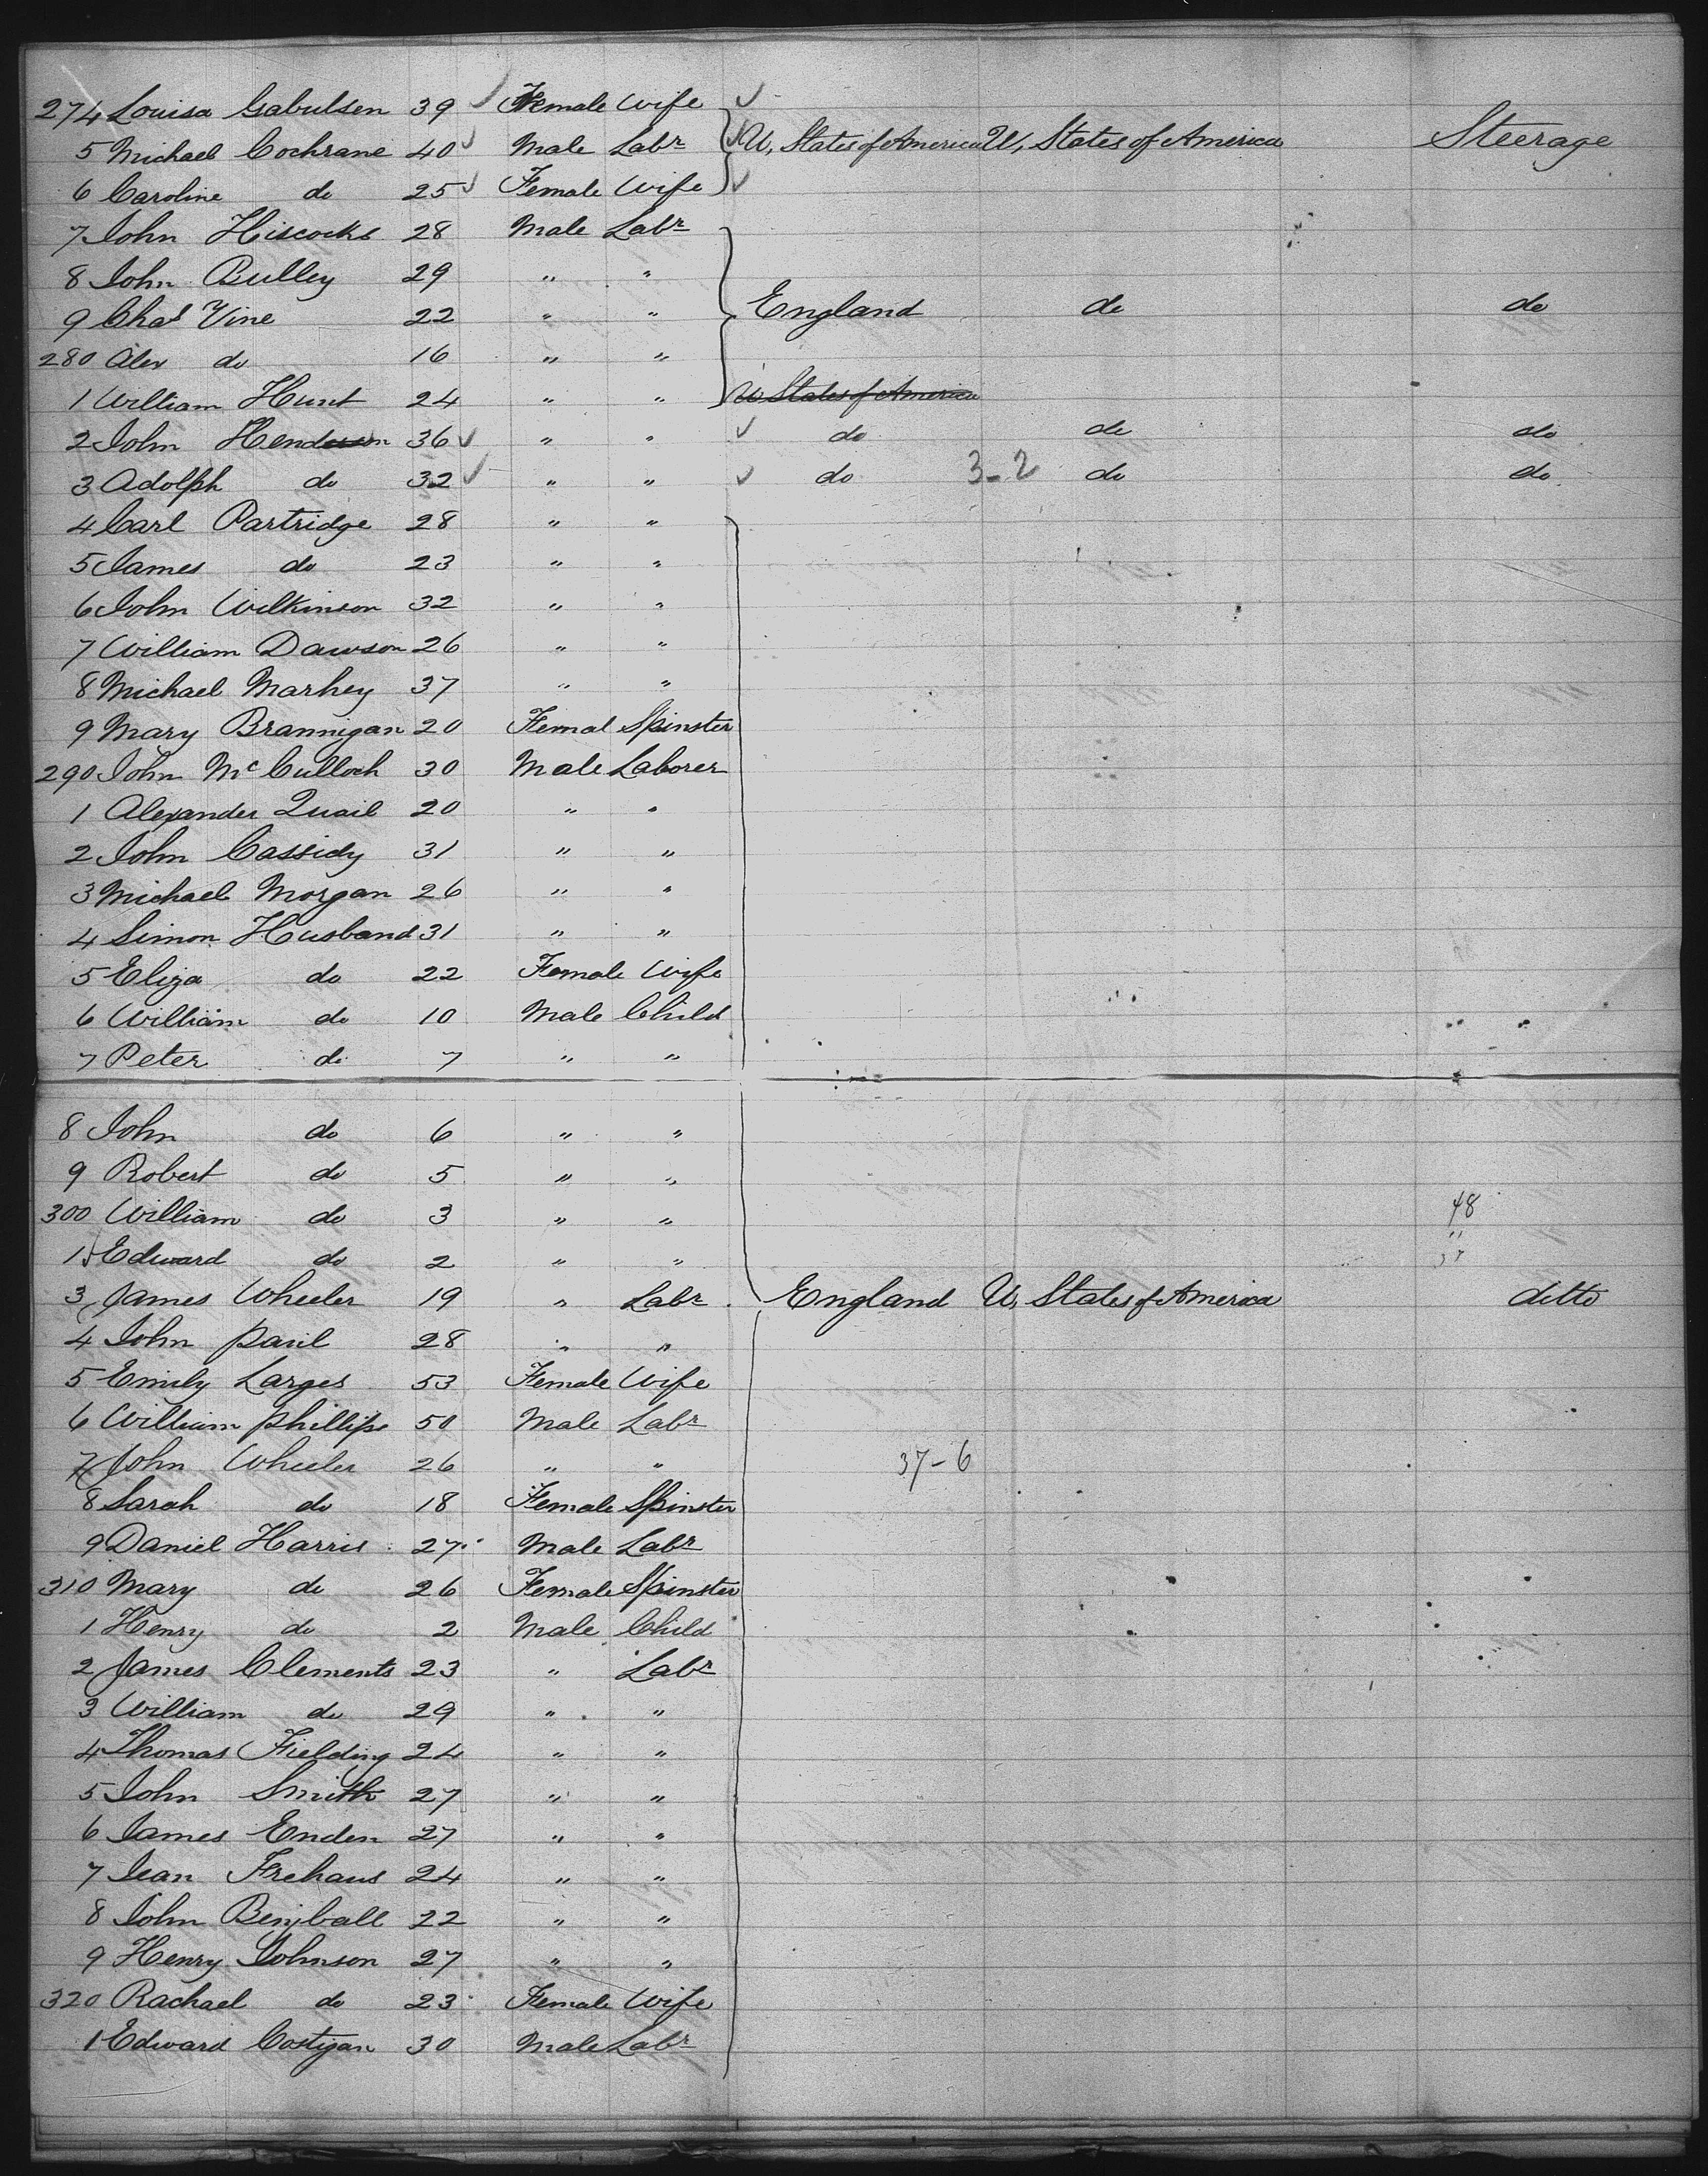 274 Louisa Gabulsen 39 Female Wife
5 Michael Cochrane 40 Male Labr U, States of America U, States of America Steerage
6 Caroline do 25 Female Wife
7 John Hiscocks 28 Male Labr
8 John Bulley 29 " "
9 Chas Vine 22 " " England do do
280 Alex do 16 " "
1 William Hunt 24 " " U States of America
2 John Henderson 36 " " do do do
3 Adolph do 32 " " do 3-2 do do
4 Carl Partridge 28 " "
5 James do 23 " "
6 John Wilkinson 32 " "
7 William Dawson 26 " "
8 Michael Marhey 37 " "
9 Mary Brannigan 20 Femal Spinster
290 John McCulloch 30 Male Laborer
1 Alexander Quail 20 " "
2 John Cassidy 31 " "
3 Michael Morgan 26 " "
4 Simon Husband 31 " "
5 Eliza do 22 Female Wife
6 William do 10 Male Child
7 Peter do 7 " "
8 John do 6 " "
9 Robert do 5 " "
300 William do 3 " " 48
1 Edward do 2 " "
3 James Wheeler 19 " Labr England U, States of America ditto
4 John Paul 28 " "
5 Emily Larges 53 Female Wife
6 William Phillips 50 Male Labr
7 John Wheeler 26 " " 37-6
8 Sarah do 18 Female Spinster
9 Daniel Harris 27 Male Labr
310 Mary do 26 Female Spinster
1 Henry do 2 Male Child
2 James Clements 23 " Labr
3 William do 29 " "
4 Thomas Fielding 24 " "
5 John Smith 27 " "
6 James Enden 27 " "
7 Jean Frehaus 24 " "
8 John Benjball 22 " "
9 Henry Johnson 27 " "
320 Rachael do 23 Female Wife
1 Edward Costigan 30 Male Labr